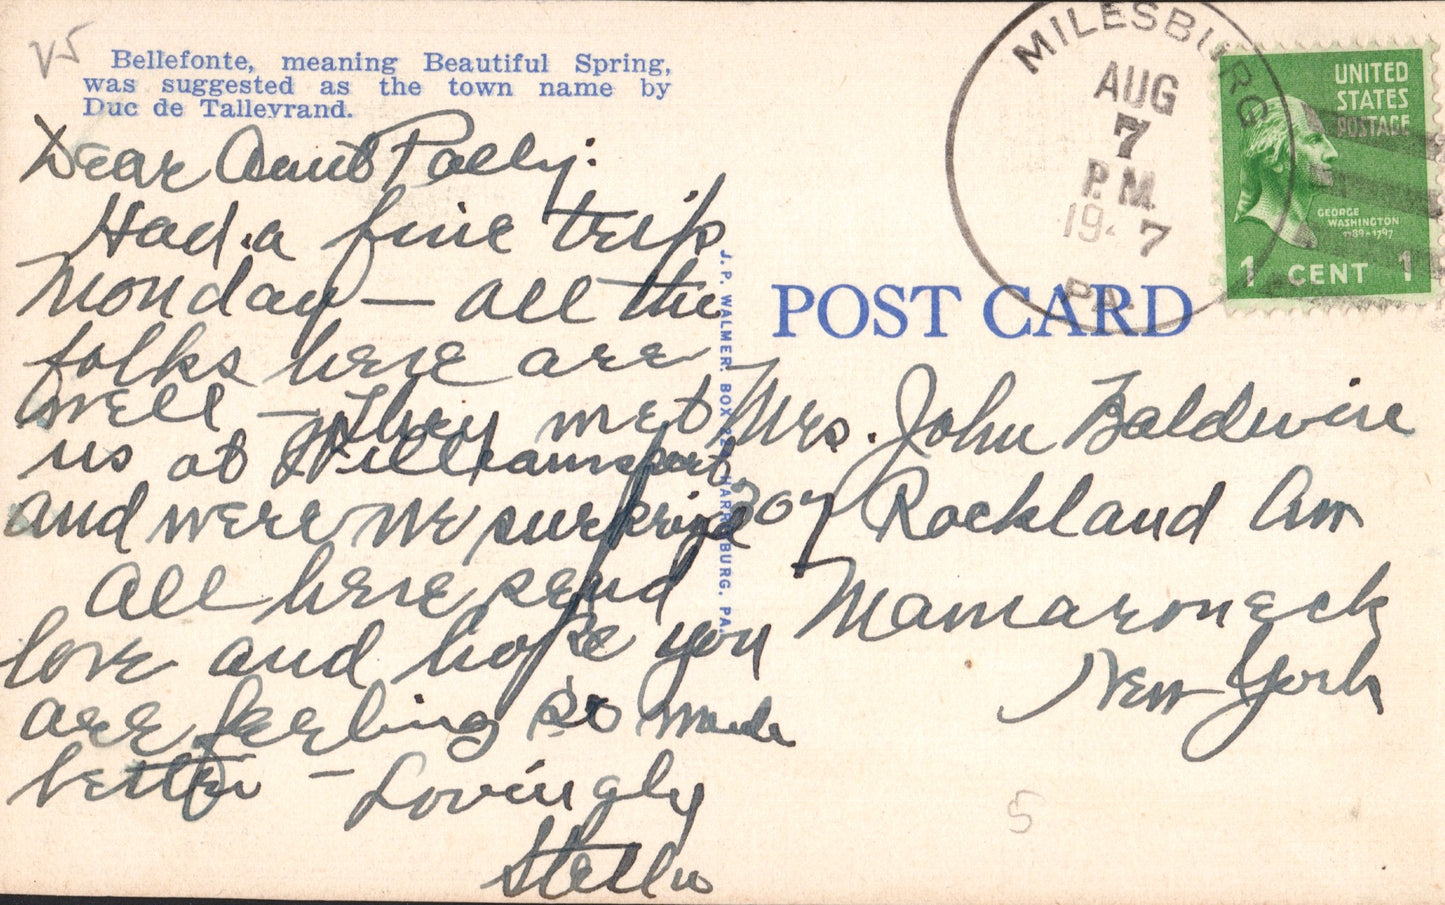 V5
Bellefonte, meaning Beautiful Spring,
was suggested as the town name by
Duc de Talleyrand.
Dear Aunt Polly:
Had a fine trip
Monday — all the
folks here are
well — They met
us at Williamsport
and were we surprised
All here send
love and hope you
are feeling so much
better — Lovingly
Stella
J. P. WALMER, BOX 224, HARRISBURG, PA.
MILESBURG
AUG
7
P.M.
1947
PA.
UNITED
STATES
POSTAGE
GEORGE
WASHINGTON
1789-1797
1 CENT 1
POST CARD
Mrs. John Baldwin
307 Rockland Ave
Mamaroneck
New York
5